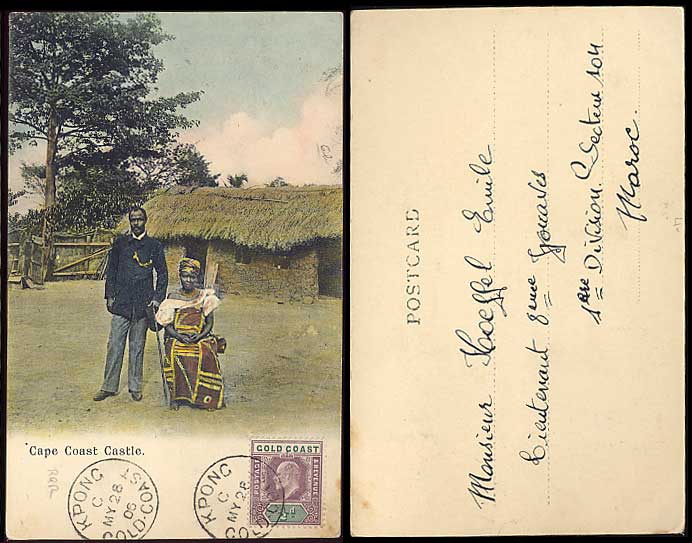 Cape Coast Castle.
KPONG
C
MY 28
06
GOLD-COAST
KPONG
C
MY 28
GOLD COAST
POSTAGE
& REVENUE
POSTCARD
Monsieur Hoeffel Emile
Lieutenant 8eme Zouaves
1ère Division Secteur 104
Maroc.